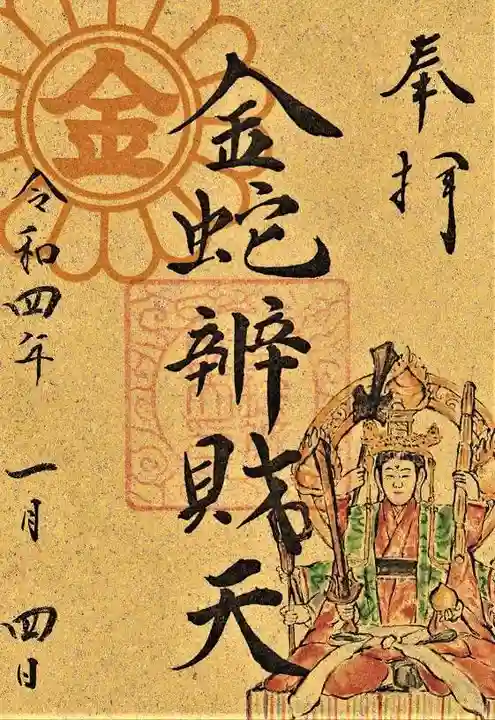 奉拝
金
金蛇辨財天
令和四年 一月 四日